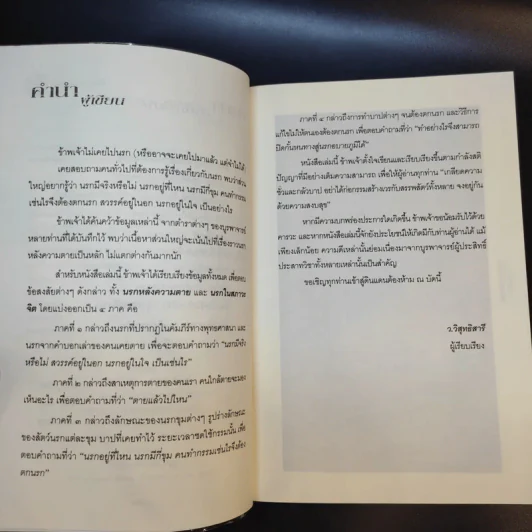 คำนำ
ผู้เขียน
ข้าพเจ้าไม่เคยไปนรก (หรืออาจจะเคยไปมาแล้ว แต่จำไม่ได้)
สอบถามคนทั่วไปที่ต้องการรู้เรื่องเกี่ยวกับนรก พบว่าส่วน
ใหญ่อยากรู้ว่า นรกมีจริงหรือไม่ นรกอยู่ที่ไหน นรกมีกี่ขุม คนทำกรรม
เช่นไรจึงต้องตกนรก สวรรค์อยู่ในอก นรกอยู่ในใจ เป็นอย่างไร
ข้าพเจ้าได้ค้นคว้าข้อมูลเหล่านี้ จากตำราต่างๆ ของบูรพาจารย์
หลายท่านที่ได้บันทึกไว้ พบว่าเนื้อหาส่วนใหญ่จะเน้นไปที่เรื่องราวนรก
หลังความตายเป็นหลัก ไม่แตกต่างกันมากนัก
สำหรับหนังสือเล่มนี้ ข้าพเจ้าได้เรียบเรียงข้อมูลทั้งหมด เพื่อตอบ
ข้อสงสัยต่างๆ ดังกล่าว ทั้ง นรกหลังความตาย และ นรกในสภาวะ
จิต โดยแบ่งออกเป็น ๔ ภาค คือ
ภาคที่ ๑ กล่าวถึงนรกที่ปรากฏในคัมภีร์ทางพุทธศาสนา และ
นรกจากคำบอกเล่าของคนเคยตาย เพื่อจะตอบคำถามว่า "นรกมีจริง
หรือไม่ สวรรค์อยู่ในอก นรกอยู่ในใจ เป็นเช่นไร"
ภาคที่ ๒ กล่าวถึงสาเหตุการตายของคนเรา คนใกล้ตายจะมอง
เห็นอะไร เพื่อตอบคำถามที่ว่า "ตายแล้วไปไหน"
ภาคที่ ๓ กล่าวถึงลักษณะของนรกขุมต่างๆ รูปร่างลักษณะ
ของสัตว์นรกแต่ละขุม บาปที่เคยทำไว้ ระยะเวลาชดใช้กรรมนั้น เพื่อ
ตอบคำถามที่ว่า "นรกอยู่ที่ไหน นรกมีกี่ขุม คนทำกรรมเช่นไรจึงต้อง
ตกนรก"
ภาคที่ ๔ กล่าวถึงการทำบาปต่างๆ จนต้องตกนรก และวิธีการ
แก้ไขไม่ให้ตนเองต้องตกนรก เพื่อตอบคำถามที่ว่า "ทำอย่างไรจึงสามารถ
ปิดกั้นหนทางสู่นรกอบายภูมิได้"
หนังสือเล่มนี้ ข้าพเจ้าตั้งใจเขียนและเรียบเรียงขึ้นตามกำลังสติ
ปัญญาที่มีอย่างเต็มความสามารถ เพื่อให้ผู้อ่านทุกท่าน "เกลียดความ
ชั่วและกลัวบาป อย่าได้ก่อกรรมสร้างเวรกับสรรพสัตว์ทั้งหลาย จงอยู่กัน
ด้วยความสงบสุข"
หากมีความบกพร่องประการใดเกิดขึ้น ข้าพเจ้าขอน้อมรับไว้ด้วย
คารวะ และหากหนังสือเล่มนี้จักยังประโยชน์ให้เกิดมีกับท่านผู้อ่านได้ แม้
เพียงเล็กน้อย ความดีเหล่านั้นย่อมเนื่องมาจากบูรพาจารย์ผู้ประสิทธิ์
ประสาทวิชาทั้งหลายเหล่านั้นเป็นสำคัญ
ขอเชิญทุกท่านเข้าสู่ดินแดนต้องห้าม ณ บัดนี้
ว.วิสุทธิสารี
ผู้เรียบเรียง